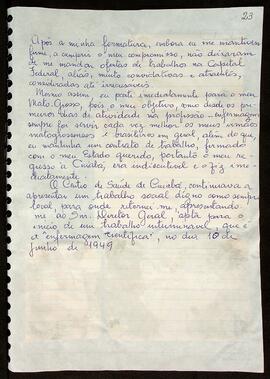 23
Após a minha formatura, embora eu me mantivesse
firme, a cumprir o meu compromisso, não deixaram
de me mandar ofertas de trabalhos na Capital
Federal, aliás, muito convidativas e atraentes,
consideradas até irrecusáveis.
Mesmo assim eu parti imediatamente para o meu
Mato-Grosso, pois o meu objetivo, desde os pri-
meiros dias de atividade na profissão-enfermagem
sempre foi servir cada vez melhor os meus irmãos
matogrossenses e brasileiros em geral, além do que
eu mantinha um contrato de trabalho, firmado
com o meu Estado querido, portanto o meu re-
gresso a Cuiabá, era indiscutível e o fiz ime-
diatamente.
O Centro de Saúde de Cuiabá, continuava a
apresentar um trabalho social digno como sempre
local, para onde retornei me apresentando-
me ao Snr. Diretor Geral, apta para o
início de um trabalho interminável, que é
a "enfermagem científica", no dia 10 de
Junho de 1949